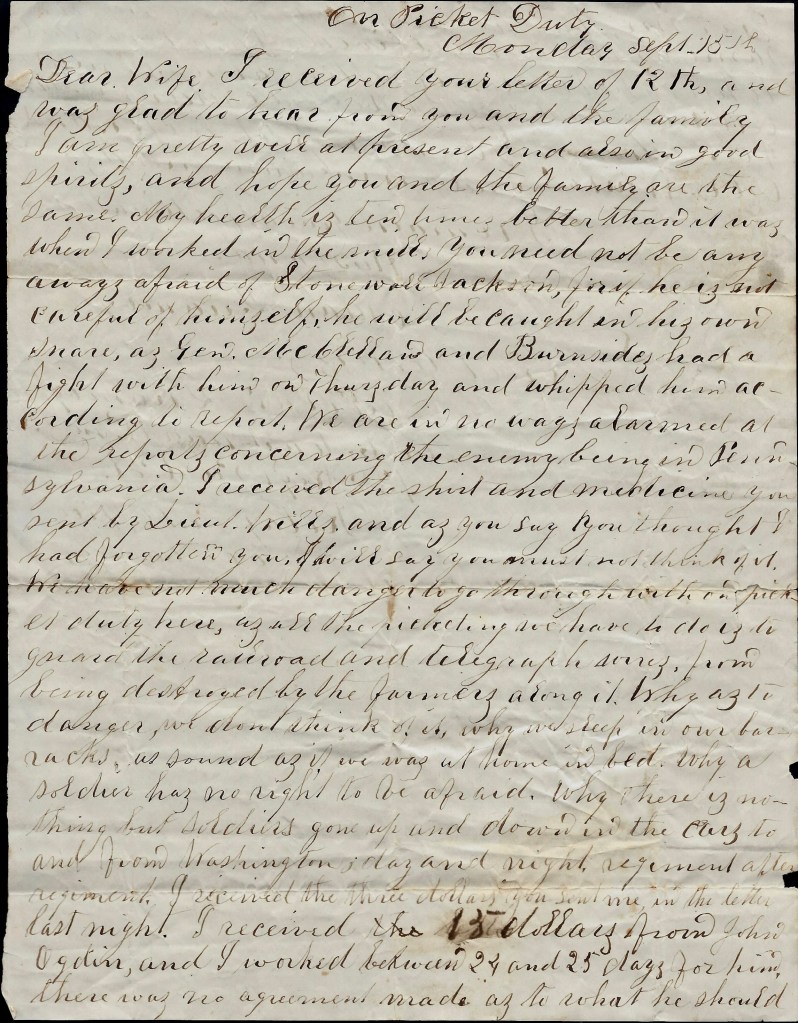 On Picket Duty
Monday Sept. 15th
Dear Wife I received your letter of 12th, and
was glad to hear from you and the family
I am pretty well at present and also in good
spirits, and hope you and the family are the
same. My health is ten times better than it was
when I worked in the mill, you need not be any
aways afraid of Stonewall Jackson, for if he is not
careful of himself, he will be caught in his own
snare, as Gen. McClelland and Burnsides had a
fight with him on Thursday and whipped him ac-
cording to report. We are in no ways alarmed at
the reports concerning the enemy being in Penn-
sylvania. I received the shirt and medicine you
sent by Lieut. Wills, and as you say you thought I
had forgotten you, I will say you must not think of it.
We have not much danger to go through with on pick-
et duty here, as all the picketing we have to do is to
guard the railroad and telegraph wires, from
being destroyed by the farmers along it. Why as to
danger, we dont think of it, why we sleep in our bar-
racks, as sound as if we was at home in bed. Why a
soldier has no right to be afraid. Why there is no-
thing but soldiers gone up and down in the cars to
and from Washington, day and night, regiment after
regiment. I received the three dollars you sent me in the letter
last night. I received the 15 dollars from John
Ogdin, and I worked between 24 and 25 days for him,
there was no agreement made as to what he should